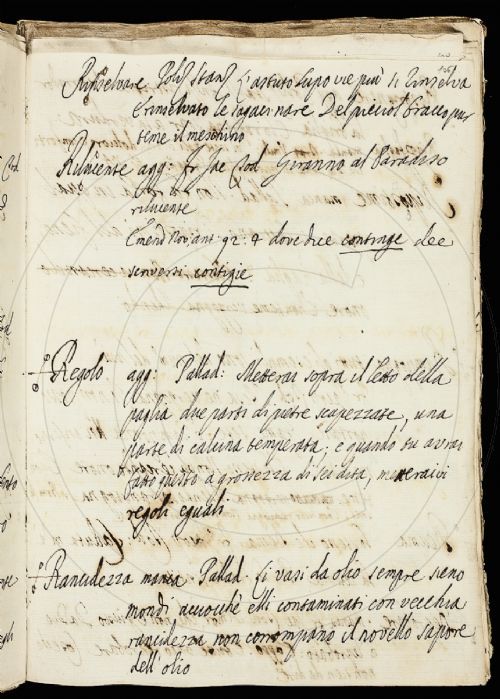 Rinselvare Poliz Stanz L'astuto Lupo vie più si rinselva
E rinselvato le sagaci nare Del picciol bracco pur
teme il meschino
Riluciente agg: fr Jac Tod Giranno al Paradiso
riluciente
Emend Nov: ant 92. 4 dove dice contrage dee
scriversi contigie
Regolo agg: Pallad: Metterai sopra il letto della
paglia due parti di pietre scapezzate, una
parte di calcina temperata; e quando tu avrai
fatto questo a grossezza di sei dita, metteraivi
regoli eguali
Rancidezza manca Pallad. Li vasi da olio sempre sieno
mondi acciocchè elli contaminati con vecchia
rancidezza non corrompano il novello sapore
dell'olio